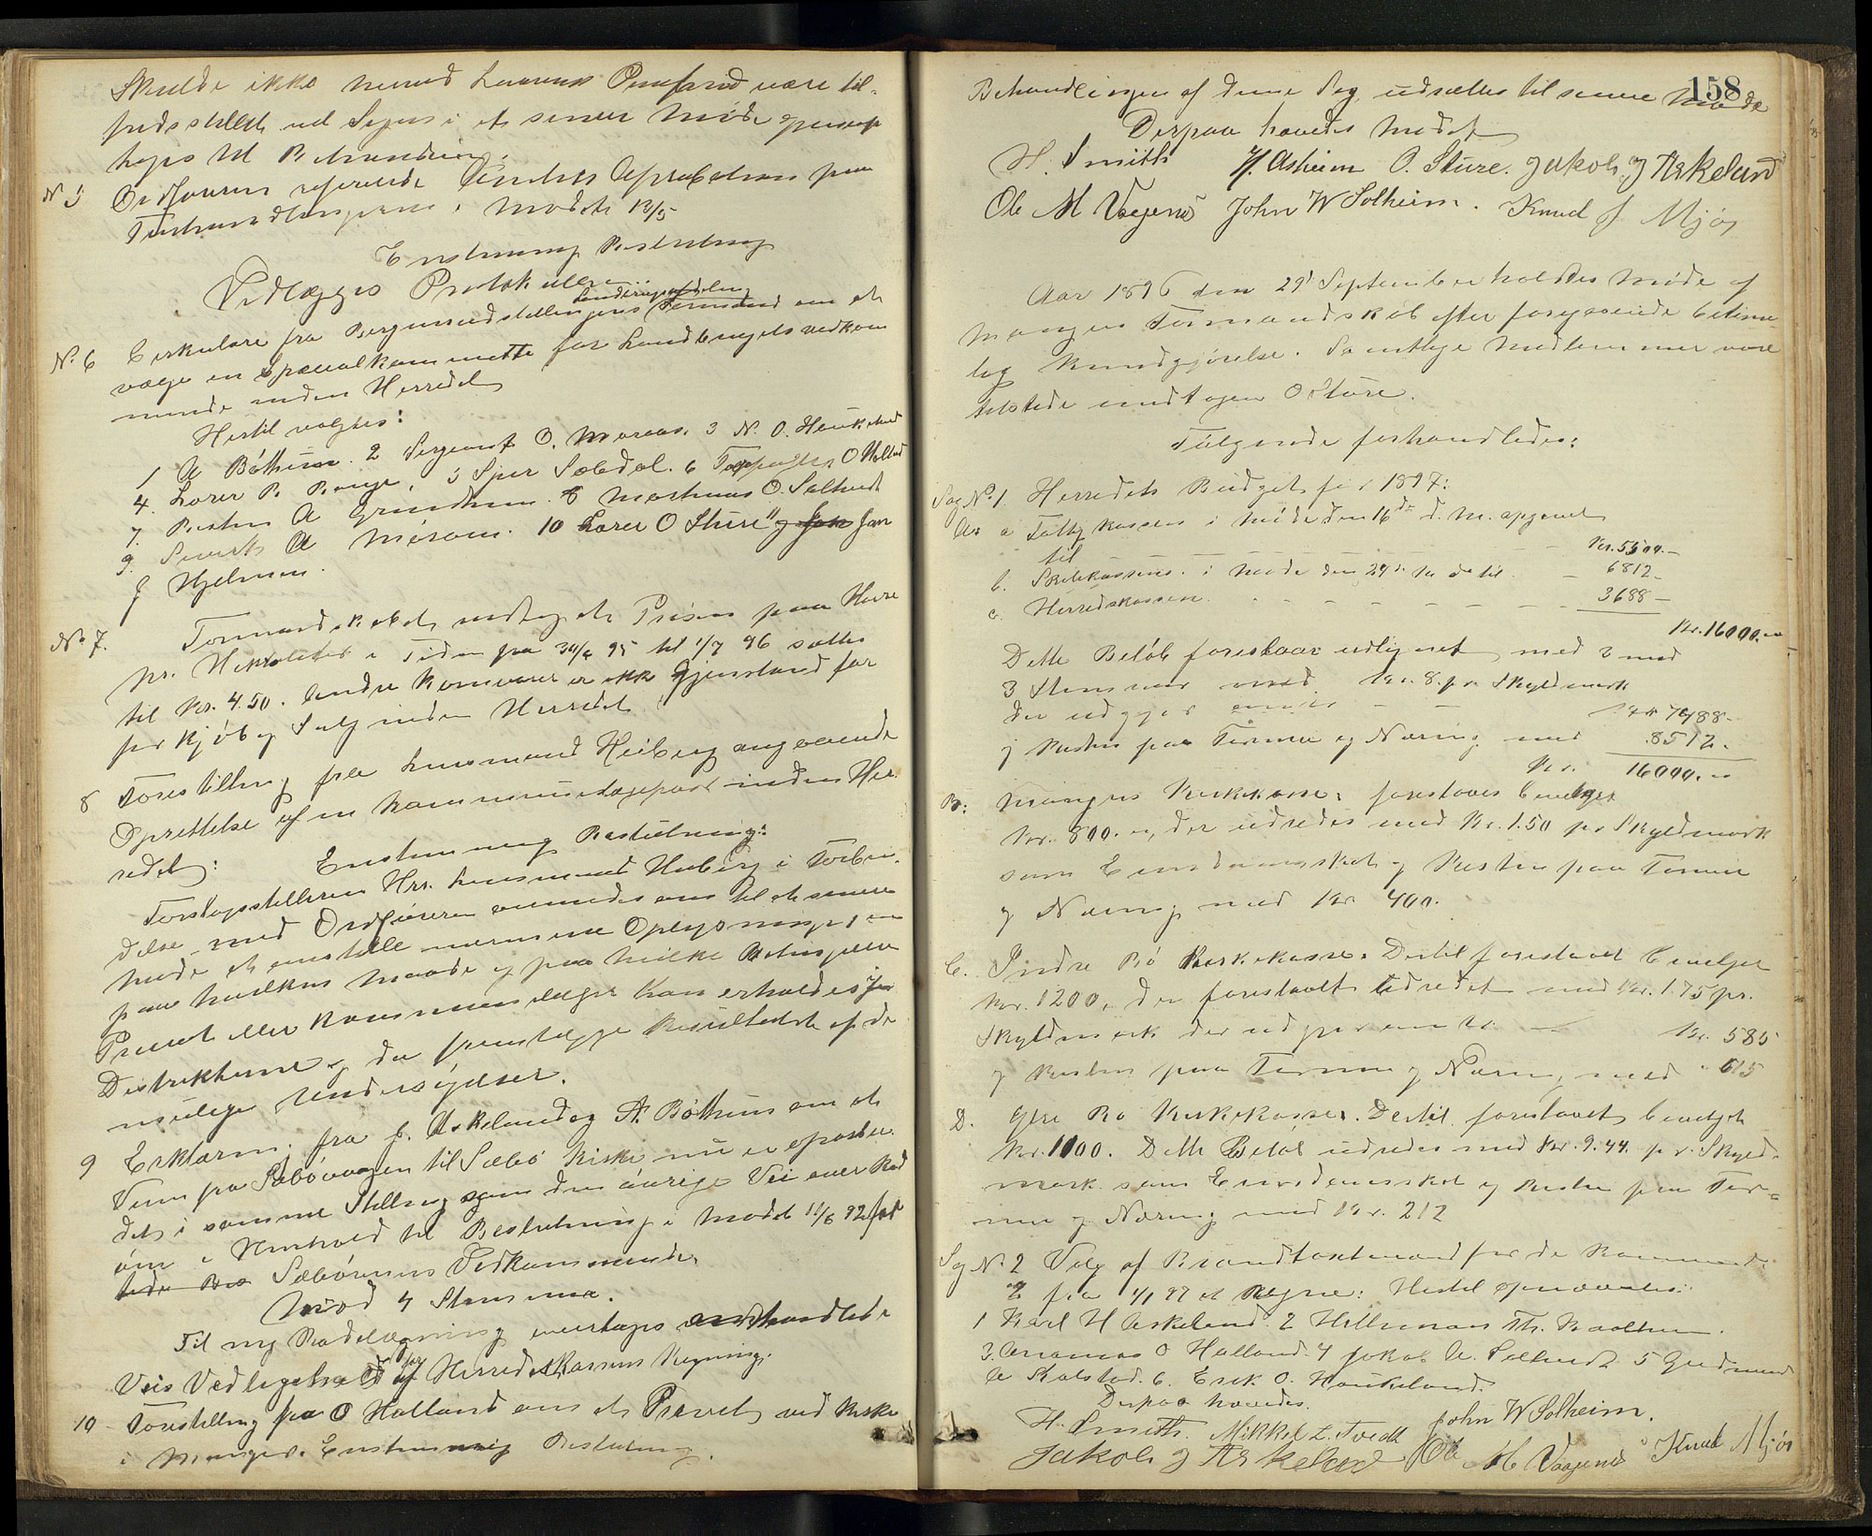 Skulde ikke herved være til-
fredsstillet ved Sagen i et senere Møde
tages til Behandling.
N. 5 Ordføreren refererede Amtets Aprobation paa
Forhandlingerne i Mødet 12/5
Enstemmig Beslutning
Vedlægges Protokollen.
N. 6 Cirkulære fra Bergensudstillingens Landbrugsafdeling om at
vælge en Specialkommitte for Landbrugets vedkom
mende inden Herredet
Hertil valgtes:
1 A Bøthun. 2 Sergeant O. Marøas. 3 N. O. Haukeland
4. Lærer B. Bouge, 5 Sjur Sæbdal. 6 O Halland
7. Presten A Grundtun. 8 Mathias O. Solheid
9. Sevrit A Misøen. 10 Lærer O Sture 11 og Jan
J Hjelmen.
No 7. Formandskabet vedtog at Prisen paa Havre
pr. Hektoliter i Tiden fra 30/6 95 til 1/7 96 sattes
til Kr. 4.50. Andre Kornvarer er ikke Gjenstand for
for Kjøb og Salg inden Herredet
8 Forestilling fra Lensmand Heiberg angaaende
Oprettelse af en Kommunedagepost inden Her-
redet:
Enstemmig Beslutning:
Forslagsstilleren Hrr. Lensmand Heiberg i Forbin-
delse med Ordføreren anmodes om til et senere
Møde at anstille nærmere Oplysninger, om
paa hvilken Maade og paa hvilke Betingelser
Privat eller Kommunelæger kan erholdes for
Distrikterne og da fremlægge Resultatet af de
mulige Undersøgelser.
9 Erklæring fra J. Askeland og A. Bøthun om at
Veien fra Sæbøvaagen til Sæbø Kirke nu er oparbei-
det i samme Stilling som den øvrige Vei over Rad
øen i Henhold til Beslutning i Mødet 11/6 92 for
Sæbøernes Vedkommende
Mod 4 Stemmer.
Til ny Rodelægning overtages omhandlede
Veis Vedligehold for Herredskassens Regning.
10 Forestilling fra O Halland om et Privet ved Kirke
i Manger. Enstemmig Beslutning.
158
Behandlingen af denne Sag udsættes til senere Møde
Derpaa hævedes Mødet
H. Smith H. Asheim O. Sture. Jakob J Askeland
Ole M Vaagenes John W Solheim. Knud J Mjøs
Aar 1896 den 29' September holdtes Møde af
Mangers Formandskab efter foregaaende betime-
lig Kundgjørelse. Samtlige Medlemmer vare
tilstede undtagen O Sture.
Følgende forhandledes:
Sag N. 1. Herredets Budget for 1897:
A. a Fattigkassen i Møde den 16de d. M. opgjoret
til - - Kr. 5500. -
b. Skolekassens i Møde den 29de til - 6812 -
c. Herredskassen. - - - - 3688 -
Kr. 16000.00
Dette Beløb foreslaaes udlignet med 3 mod
3 Stemmer med Kr. 8. pr Skyldmark
der udgjør omtr - - Kr 7488 -
og Resten paa Formue og Næring med 8512.
Kr. 16000.00
B: Mangers Kirkekasse: foreslaaes bevilget
Kr. 800.00, der udredes med Kr. 1.50 pr Skyldmark
som Eiendomsskat og Resten paa Formue
og Næring med Kr 400.
C. Indre Bø Kirkekasse. Dertil foreslaaet bevilget
Kr. 1200, der foreslaaes udredet med Kr. 1.75 pr.
Skyldmark der udgjør omtr - Kr. 585
og Resten paa Formue og Næring med " 615
D. Ytre Bø Kirkekasse. Dertil foreslaaet bevilget
Kr. 1100. Dette Beløb udredes med Kr. 9.44. pr. Skyld-
mark som Eiendomsskat og Resten paa For-
mue og Næring med Kr. 212
Sag N. 2 Valg af Brandtaxtmænd for de kommende
Aar fra 1/1 97 at Regne: Hertil opnævntes:
1 Karl H Askeland. 2 Hillemann Th. Kaalheim.
3. Andreas O Halland. 4 Jakob A. Solheid. 5 Gudmund
A Kolstad. 6. Erik O. Haukeland.
Derpaa hævedes.
H. Smith. Mikkel L. Tvedt John W Solheim.
Jakob J Askeland Ole M Vaagenes Knud Mjøs